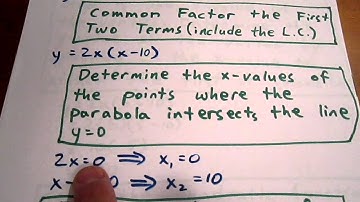 Common Factor the First
Two Terms (include the L.C.)
y = 2x(x-10)
Determine the x-values of
the points where the
parabola intersects the line
y=0
2x=0 ⟹ x₁=0
x- 0 ⟹ x₂ = 10